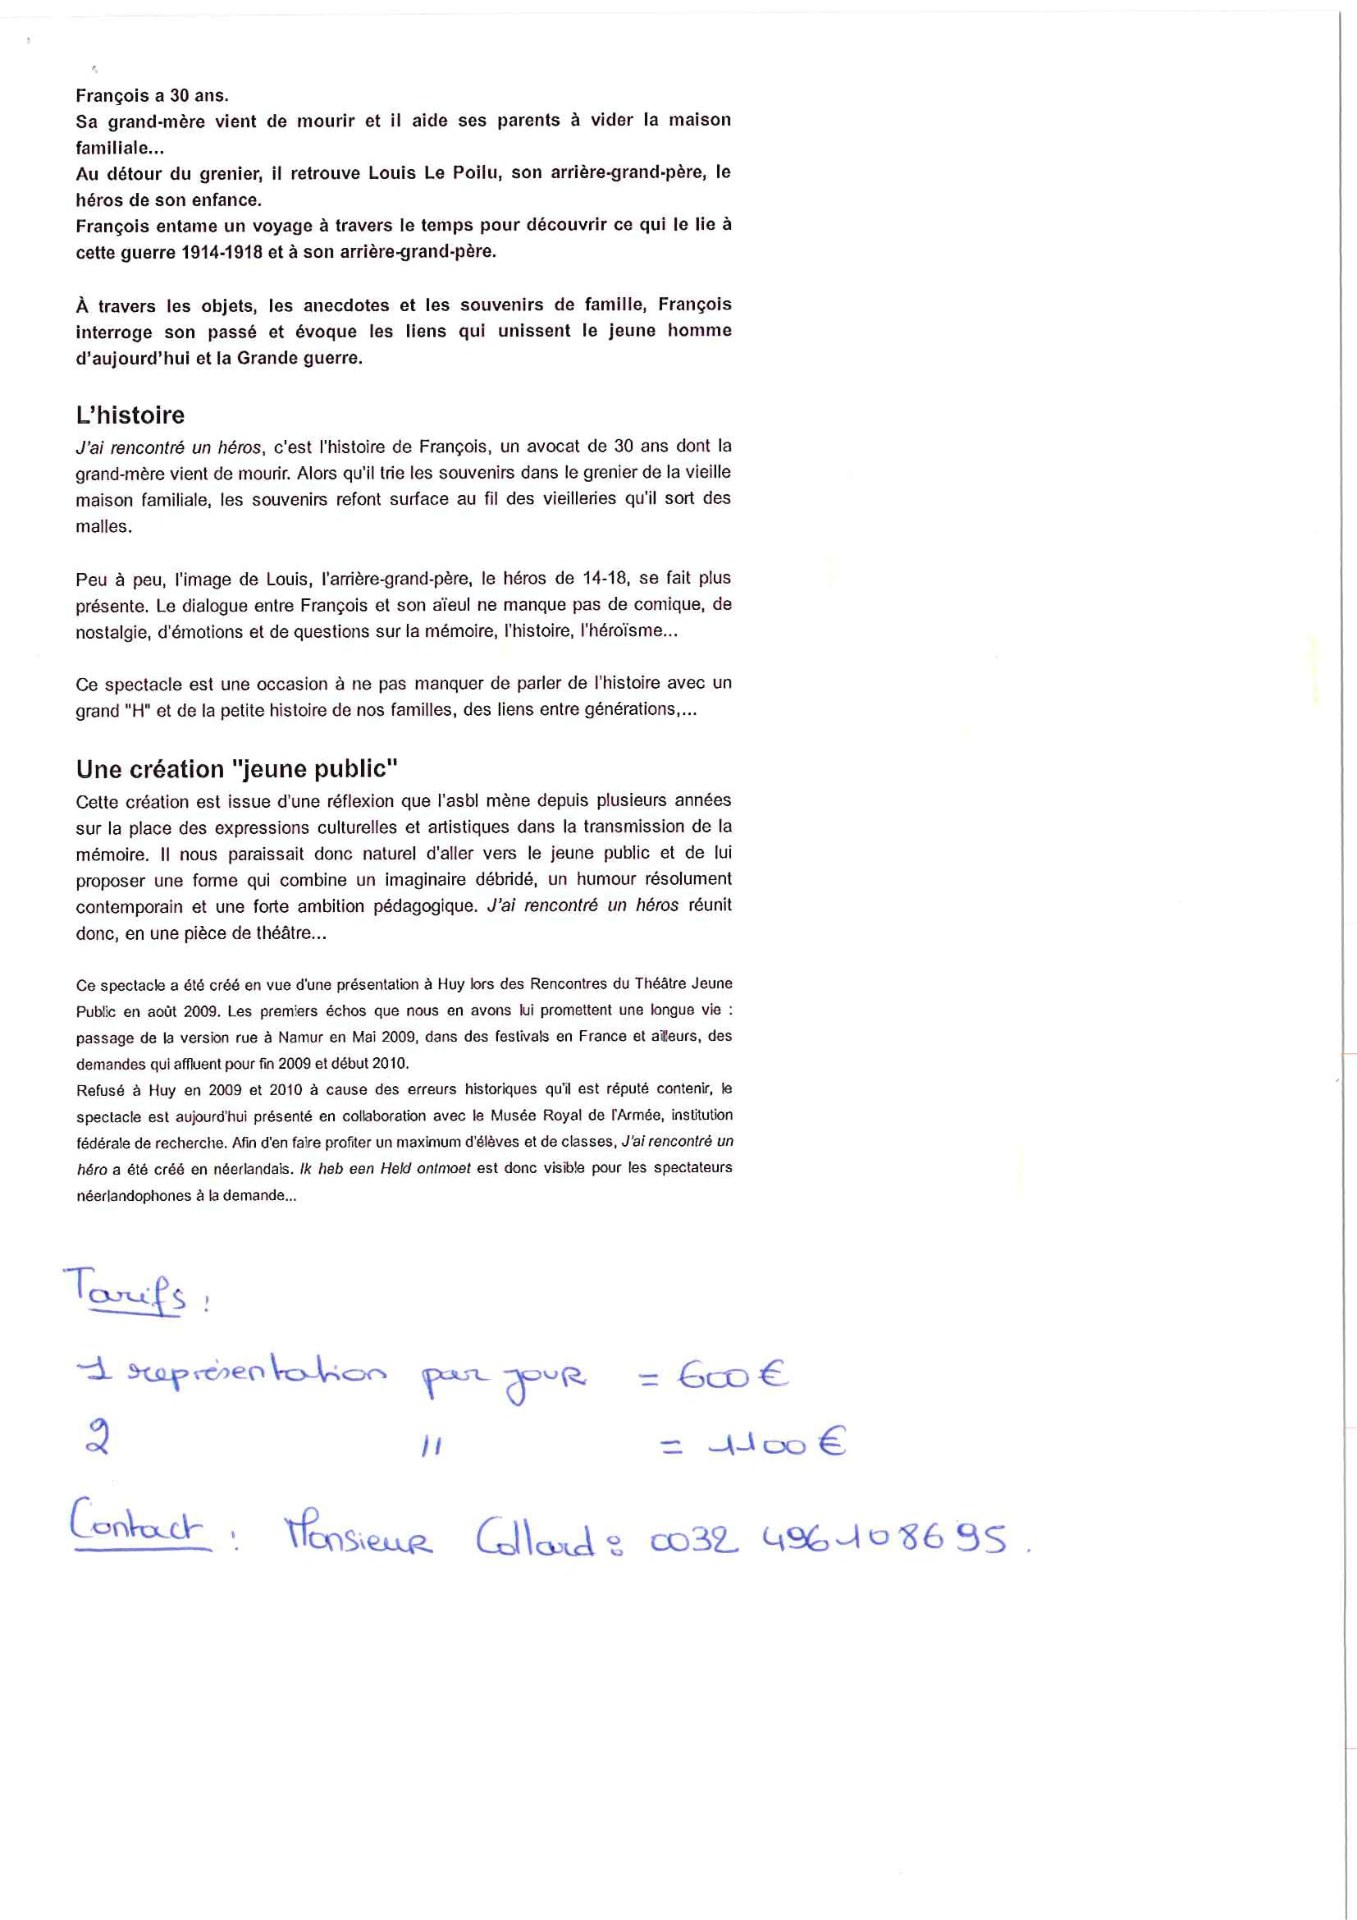 François a 30 ans.
Sa grand-mère vient de mourir et il aide ses parents à vider la maison
familiale...
Au détour du grenier, il retrouve Louis Le Poilu, son arrière-grand-père, le
héros de son enfance.
François entame un voyage à travers le temps pour découvrir ce qui le lie à
cette guerre 1914-1918 et à son arrière-grand-père.
À travers les objets, les anecdotes et les souvenirs de famille, François
interroge son passé et évoque les liens qui unissent le jeune homme
d'aujourd'hui et la Grande guerre.
L'histoire
J'ai rencontré un héros, c'est l'histoire de François, un avocat de 30 ans dont la
grand-mère vient de mourir. Alors qu'il trie les souvenirs dans le grenier de la vieille
maison familiale, les souvenirs refont surface au fil des vieilleries qu'il sort des
malles.
Peu à peu, l'image de Louis, l'arrière-grand-père, le héros de 14-18, se fait plus
présente. Le dialogue entre François et son aïeul ne manque pas de comique, de
nostalgie, d'émotions et de questions sur la mémoire, l'histoire, l'héroïsme...
Ce spectacle est une occasion à ne pas manquer de parler de l'histoire avec un
grand "H" et de la petite histoire de nos familles, des liens entre générations,...
Une création "jeune public"
Cette création est issue d'une réflexion que l'asbl mène depuis plusieurs années
sur la place des expressions culturelles et artistiques dans la transmission de la
mémoire. Il nous paraissait donc naturel d'aller vers le jeune public et de lui
proposer une forme qui combine un imaginaire débridé, un humour résolument
contemporain et une forte ambition pédagogique. J'ai rencontré un héros réunit
donc, en une pièce de théâtre...
Ce spectacle a été créé en vue d'une présentation à Huy lors des Rencontres du Théâtre Jeune
Public en août 2009. Les premiers échos que nous en avons lui promettent une longue vie :
passage de la version rue à Namur en Mai 2009, dans des festivals en France et ailleurs, des
demandes qui affluent pour fin 2009 et début 2010.
Refusé à Huy en 2009 et 2010 à cause des erreurs historiques qu'il est réputé contenir, le
spectacle est aujourd'hui présenté en collaboration avec le Musée Royal de l'Armée, institution
fédérale de recherche. Afin d'en faire profiter un maximum d'élèves et de classes, J'ai rencontré un
héro a été créé en néerlandais. Ik heb een Held ontmoet est donc visible pour les spectateurs
néerlandophones à la demande...
Tarifs :
1 représentation par jour = 600€
2 " = 1100€
Contact : Monsieur Collard : 0032 496108695.